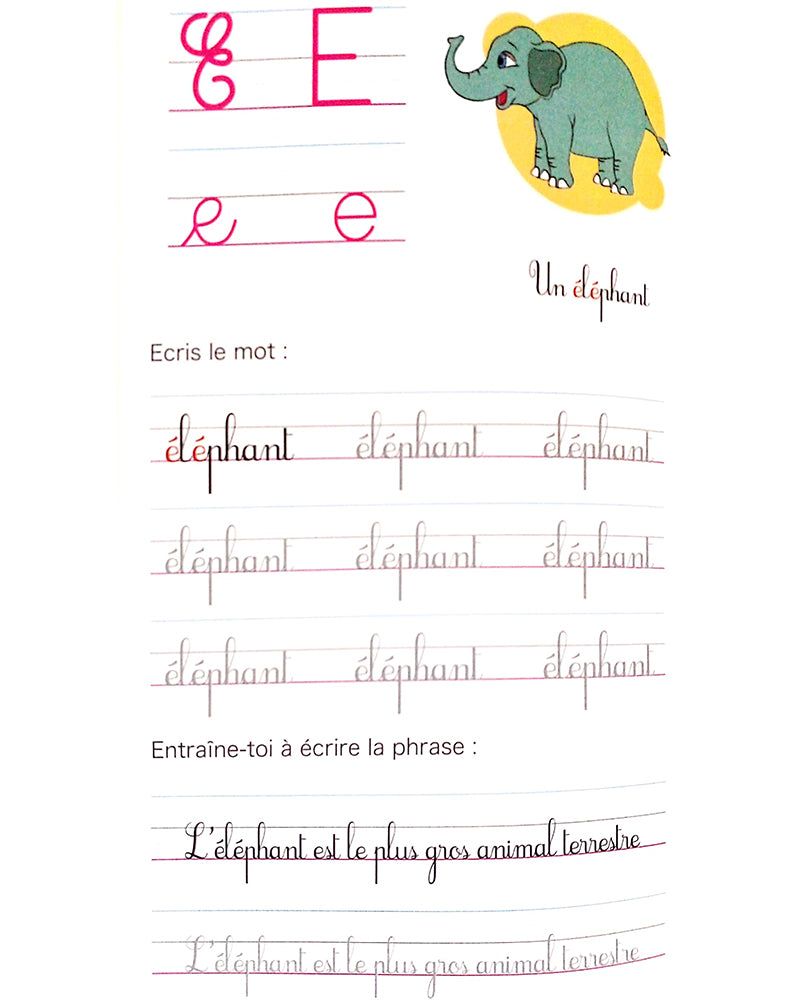 E E
e e
Un éléphant
Ecris le mot :
éléphant éléphant éléphant
éléphant éléphant éléphant
éléphant éléphant éléphant
Entraîne-toi à écrire la phrase :
L'éléphant est le plus gros animal terrestre
L'éléphant est le plus gros animal terrestre